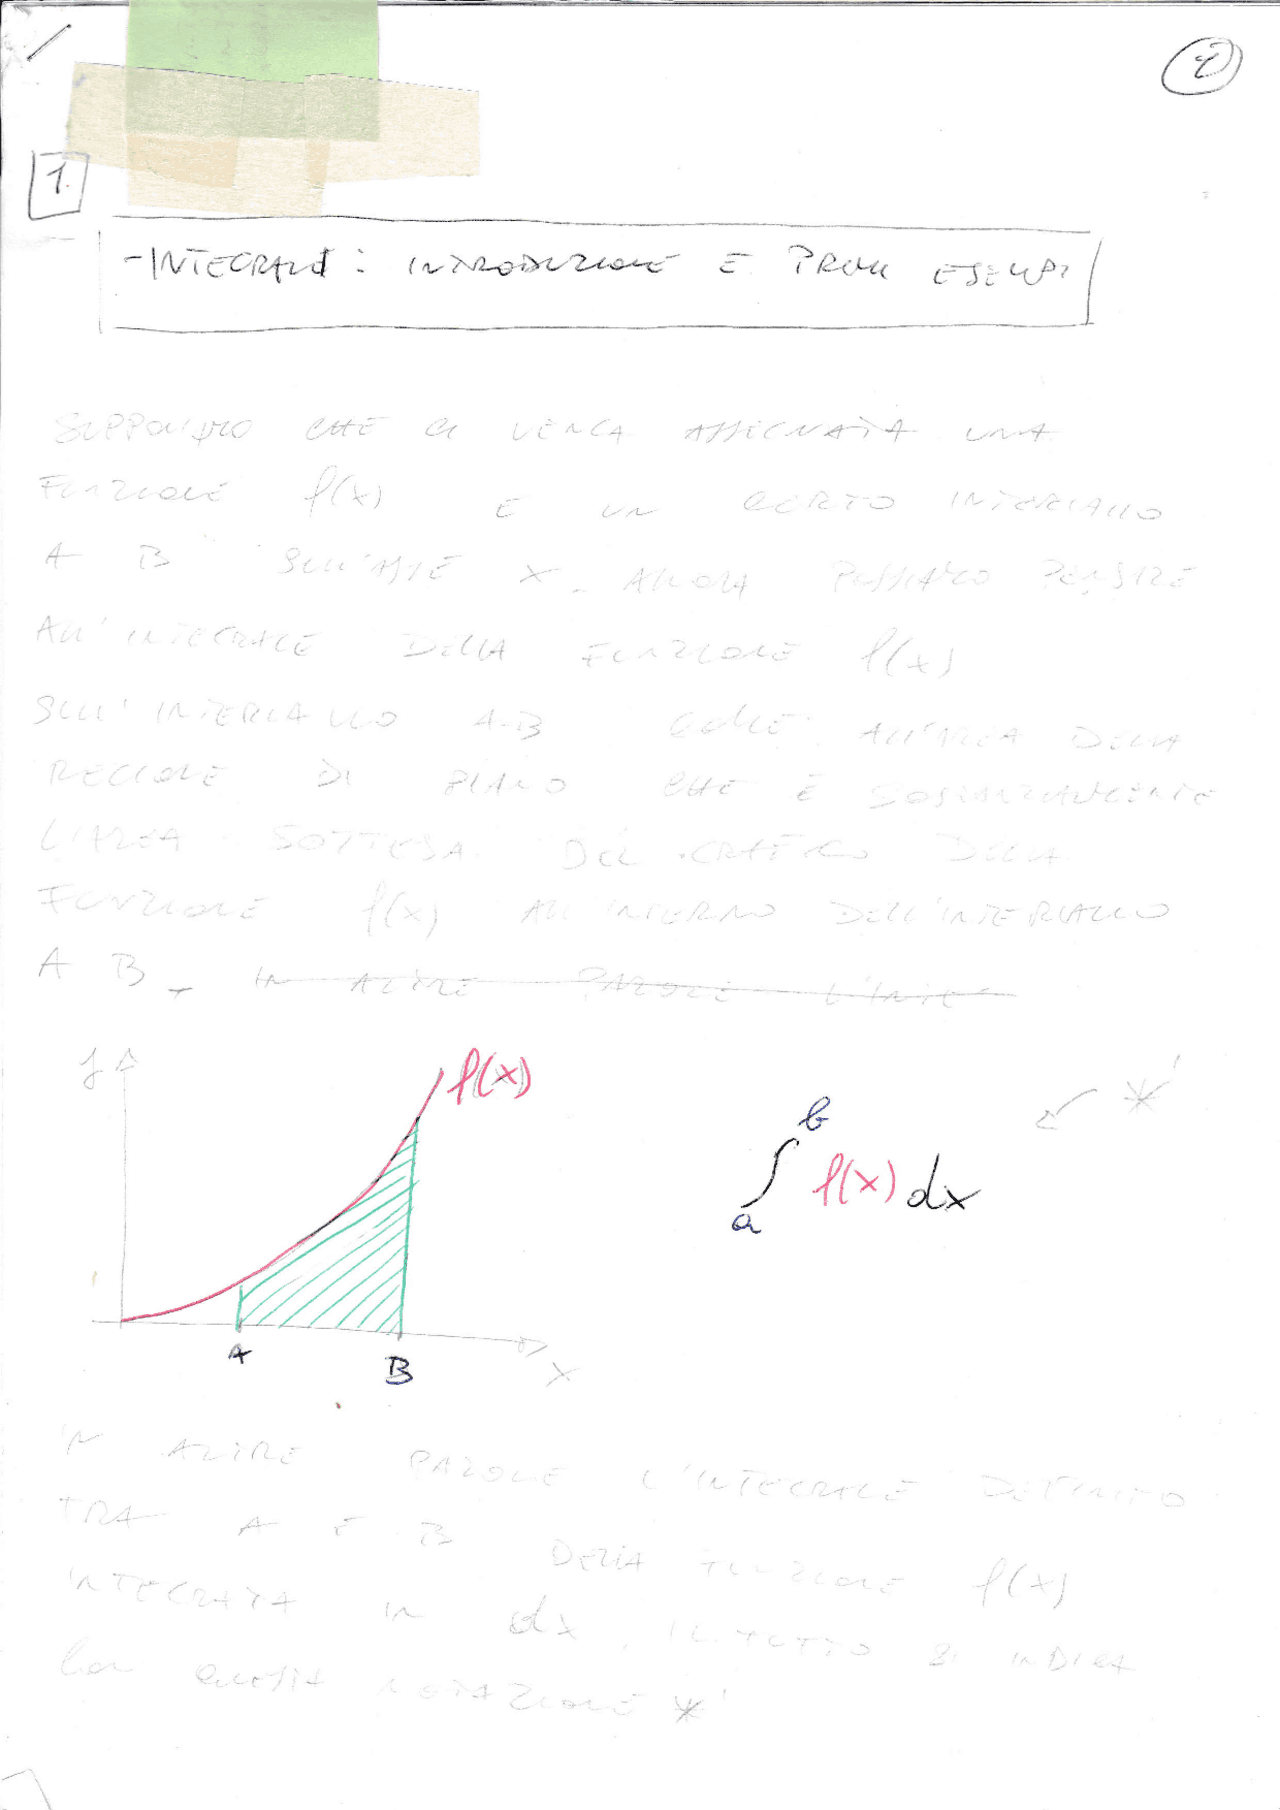 1.
- INTEGRALI : INTRODUZIONE E PRIMI ESEMPI
SUPPONIAMO CHE CI VENGA ASSEGNATA UNA
FUNZIONE f(x) E UN CERTO INTERVALLO
A B SULL'ASSE X. ALLORA POSSIAMO PENSARE
ALL'INTEGRALE DELLA FUNZIONE f(x)
SULL'INTERVALLO A-B COME ALL'AREA DELLA
REGIONE DI PIANO CHE È SOSTANZIALMENTE
L'AREA SOTTESA DEL GRAFICO DELLA
FUNZIONE f(x) ALL'INTERNO DELL'INTERVALLO
A B. IN ALTRE PAROLE L'INTE
y f(x)
∫ₐᵇ f(x) dx *'
A B x
IN ALTRE PAROLE L'INTEGRALE DEFINITO
TRA A E B DELLA FUNZIONE f(x)
INTEGRATA IN dx, IL TUTTO SI INDICA
Con QUESTA NOTAZIONE *'